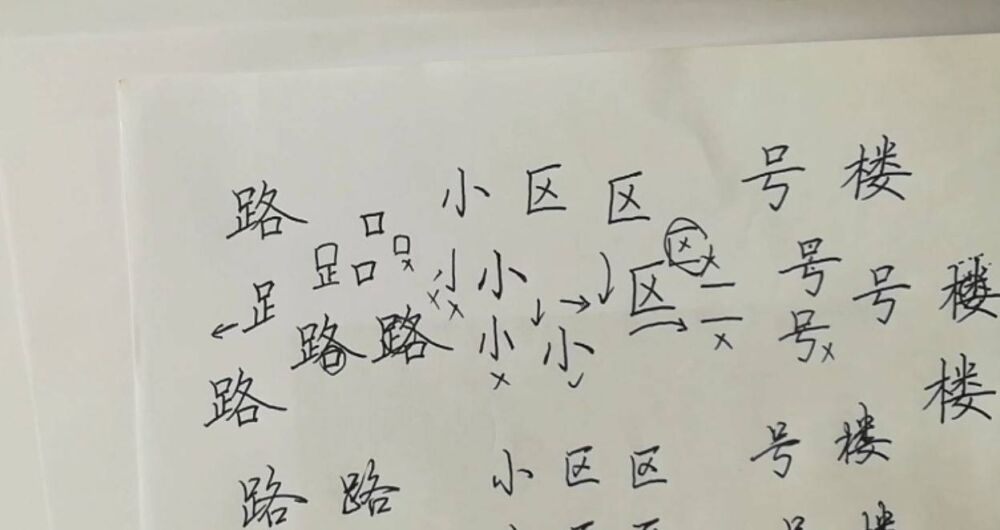 路 小 区 区 号 楼
足 口 口 口 小 小 区 区 号 号 楼
足 路 路 小 小 号
路 楼
路 路 小 区 区 号 楼